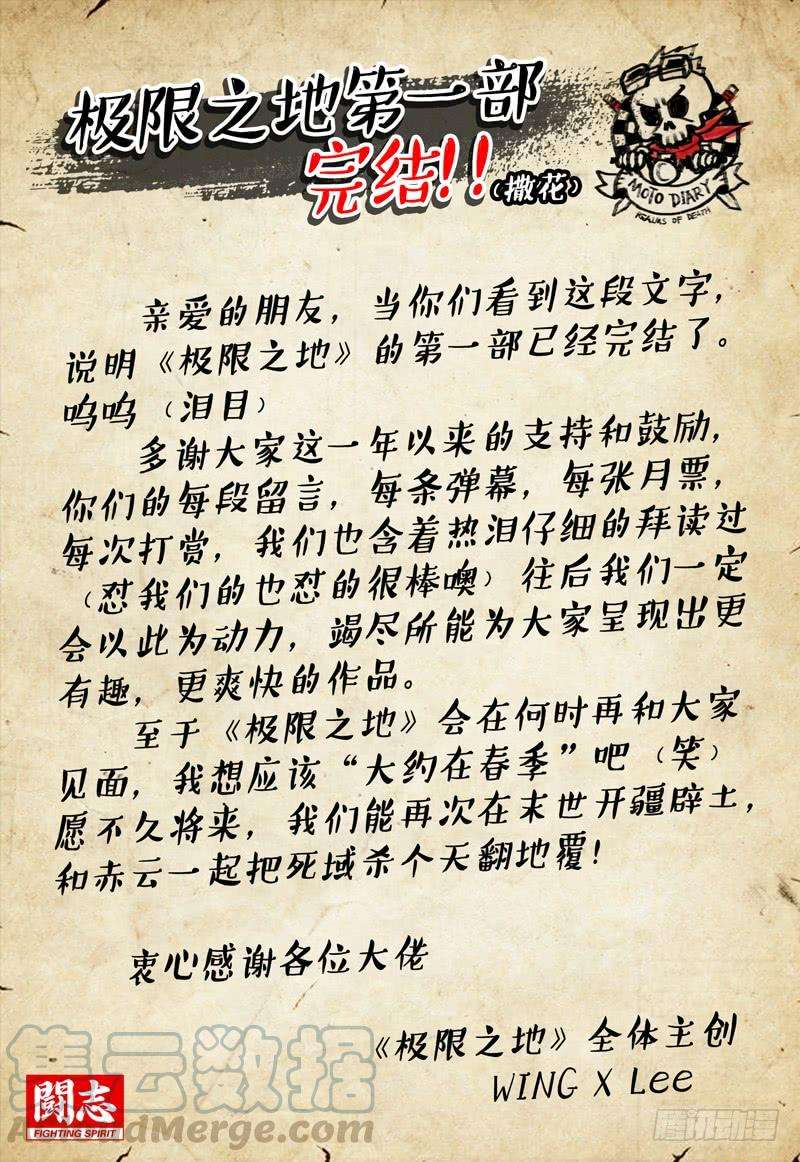 极限之地第一部
完结!!(撒花)
MOTO DIARY
REALMS OF DEATH
亲爱的朋友，当你们看到这段文字，
说明《极限之地》的第一部已经完结了。
呜呜（泪目）
多谢大家这一年以来的支持和鼓励，
你们的每段留言，每条弹幕，每张月票，
每次打赏，我们也含着热泪仔细的拜读过
（怼我们的也怼的很棒噢）往后我们一定
会以此为动力，竭尽所能为大家呈现出更
有趣，更爽快的作品。
至于《极限之地》会在何时再和大家
见面，我想应该“大约在春季”吧（笑）
愿不久将来，我们能再次在末世开疆辟土，
和赤云一起把死域杀个天翻地覆！
衷心感谢各位大佬
《极限之地》全体主创
WING X Lee
集云数据
闘志
FIGHTING SPIRIT
Merge.com
腾讯动漫